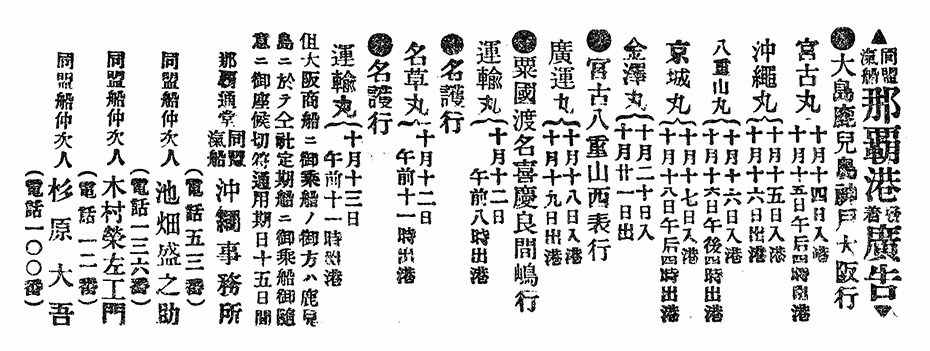 ▲同盟汽船那覇港発着廣告▼
●大島鹿兒島神戸大阪行
宮古丸
十月十四日入港
十月十五日午后四時出港
沖繩丸
十月十五日入港
十月十六日出港
八重山丸
十月十六日入港
十月十六日午後四時出港
京城丸
十月十七日入港
十月十八日午后四時出港
金澤丸
十月二十日入
十月廿一日出
●宮古八重山西表行
廣運丸
十月十八日入港
十月十九日出港
●粟國渡名喜慶良間嶋行
運輸丸
十月十二日
午前八時出港
●名護行
名草丸
十月十二日
午前十一時出港
●名護行
運輸丸
十月十三日
午前十一時出港
但大阪商船ニ御乘船ノ御方ハ鹿兒
島ニ於テ仝社定期船ニ御乘船御隨
意ニ御座候切符通用期日十五日間
那覇通堂同盟汽船沖繩事務所
(電話五三番)
同盟船仲次人 池畑盛之助
(電話一三六番)
同盟船仲次人 木村榮左工門
(電話一二番)
同盟船仲次人 杉原大吾
(電話一〇〇番)